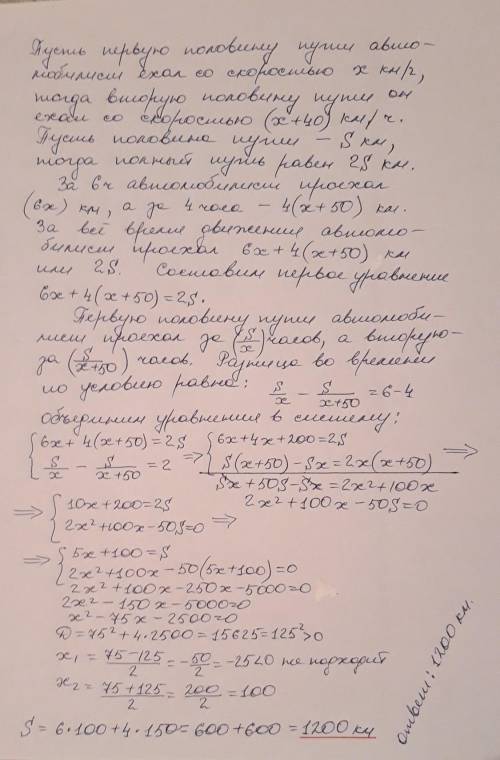 Пусть первую половину пути авто-
мобилист ехал со скоростью x км/ч,
тогда вторую половину пути он
ехал со скоростью (x+40) км/ч.
Пусть половина пути – S км,
тогда полный путь равен 2S км.
За 6ч автомобилист проехал
(6x) км, а за 4 часа – 4(x+50) км.
За всё время движения автомо-
билист проехал 6x+4(x+50) км
или 2S. Составим первое уравнение
6x+4(x+50)=2S.
Первую половину пути автомоби-
лист проехал за (S/x) часов, а вторую-
за (S/(x+50)) часов. Разница во времени
по условию равна: S/x − S/(x+50) = 6−4
Объединим уравнения в систему:
{6x+4(x+50)=2S => {6x+4x+200=2S =>
{S/x − S/(x+50) = 2 {S(x+50)−Sx=2x(x+50)
Sx+50S−Sx=2x²+100x
2x²+100x−50S=0
=> {10x+200=2S
{2x²+100x−50S=0 =>
=> {5x+100=S
{2x²+100x−50(5x+100)=0
2x²+100x−250x−5000=0
2x²−150x−5000=0
x²−75x−2500=0
D=75²+4·2500=15625=125²>0
x₁ = (75−125)/2 = −50/2 = −25<0 не подходит
x₂ = (75+125)/2 = 200/2 = 100
S = 6·100+4·150=600+600=1200 км
ответ: 1200 км.